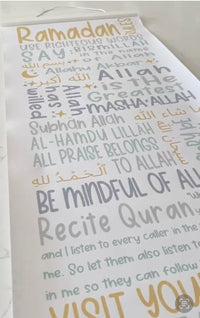 Ramadan
USE RIGHTEOUS WORDS
SAY: BISMILLAH
in the name
بسم الله
of Allah
Allahu Akbar
الله أكبر
Allah
is the
Greatest
Allah
has
willed
MASHA'ALLAH
Subhan Allah
AL-HAMDU LILLAH
ALL PRAISE BELONGS
TO ALLAH
الْحَمْدُ لِلَّهِ
BE MINDFUL OF
Recite Quran
and I listen to every caller in the
me. So let them also listen to
in me so they can follow
VISIT YOU